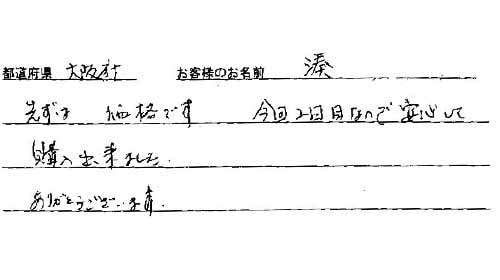 都道府県 大阪府 お客様のお名前 湊
先ずは 価格です 今回2回目なので安心して
購入出来ました.
ありがとうございます.